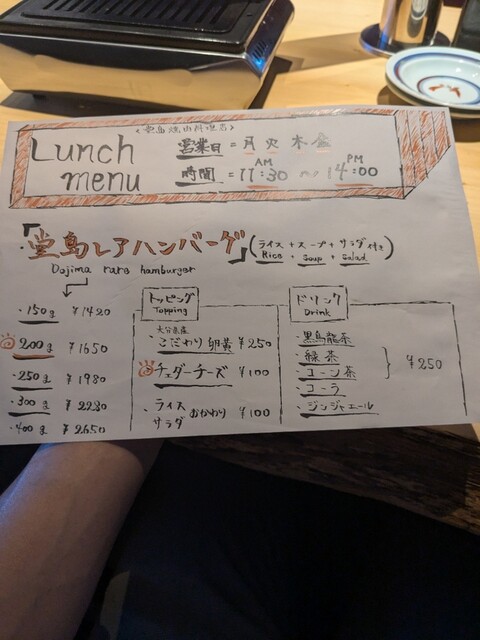 <堂島焼肉料理店>
Lunch menu
営業日 = 月 火 木 金
時間 = AM 11:30 ~ PM 14:00
『堂島レアハンバーグ』(ライス+スープ+サラダ付き)
Rice + Soup + Salad
Dojima rare hamburger
・150g ¥1420
200g ¥1650
・250g ¥1980
・300g ¥2230
・400g ¥2650
トッピング
Topping
大分県産
・こだわり卵黄 ¥250
チェダーチーズ ¥100
・ライス サラダ おかわり ¥100
ドリンク
Drink
・黒烏龍茶
・緑茶
・コーン茶
・コーラ
・ジンジャエール
¥250